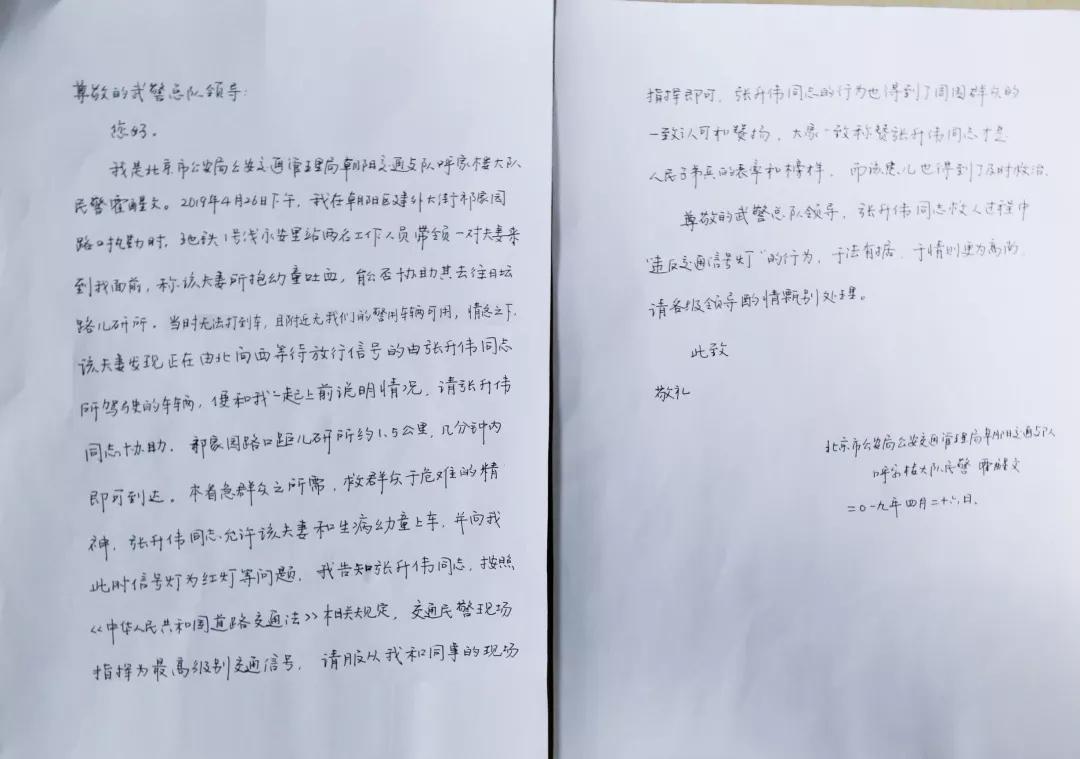 尊敬的武警总队领导：
您好。
我是北京市公安局公安交通管理局朝阳交通支队呼家楼大队
民警霍醒文。2019年4月26日下午，我在朝阳区建外大街祁家园
路口执勤时，地铁1号线永安里站两名工作人员带领一对夫妻来
到我面前，称该夫妻所抱幼童吐血，能否协助其去往日坛
路儿研所。当时无法打到车，且附近无我们的警用车辆可用，情急之下，
该夫妻发现正在由北向西等待放行信号的由张升伟同志
所驾驶的车辆，便和我一起上前说明情况，请张升伟
同志协助。祁家园路口距儿研所约1.5公里，几分钟内
即可到达。本着急群众之所需，救群众于危难的精
神，张升伟同志允许该夫妻和生病幼童上车，并向我
此时信号灯为红灯等问题，我告知张升伟同志，按照
《中华人民共和国道路交通法》相关规定，交通民警现场
指挥为最高级别交通信号，请服从我和同事的现场
指挥即可，张升伟同志的行为也得到了周围群众的
一致认可和赞扬，大家一致称赞张升伟同志才是
人民子弟兵的表率和榜样，而该患儿也得到了及时救治。
尊敬的武警总队领导，张升伟同志救人过程中
“违反交通信号灯”的行为，于法有据，于情则更为高尚，
请各级领导酌情甄别处理。
此致
敬礼
北京市公安局公安交通管理局朝阳交通支队
呼家楼大队民警 霍醒文
二〇一九年四月二十六日.